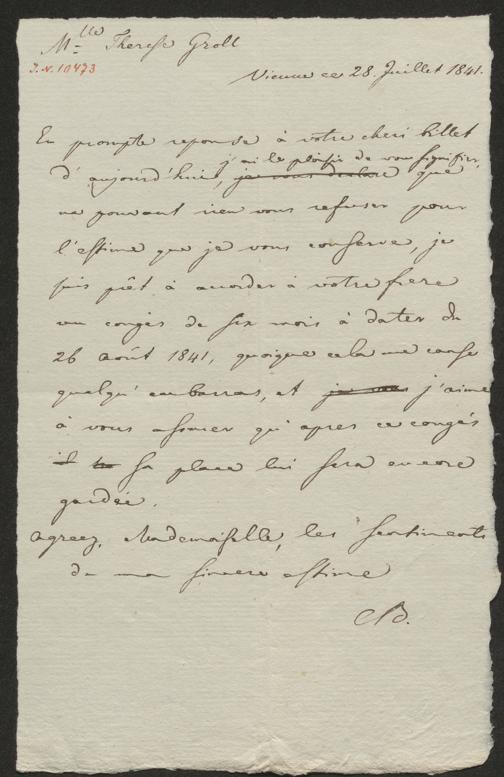 Mlle Therese Groll
I.N. 10473
Vienne ce 28. Juillet 1841.
En prompte reponse à votre cheri billet
j'ai le plaisir de vous signifier,
d'aujourd'huis, je vous declare que
ne pouvant rien vous refuser pour
l'estime que je vous conserve, je
suis prêt à accorder à votre frere
un congés de six mois à dater du
26 août 1841, quoique cela me cause
quelqu' embarras, et j'aime
à vous assurer qu'apres ce congés
il sa place lui sera encore
gardée.
agreez, Mademoiselle, les sentiments
de ma sincere estime